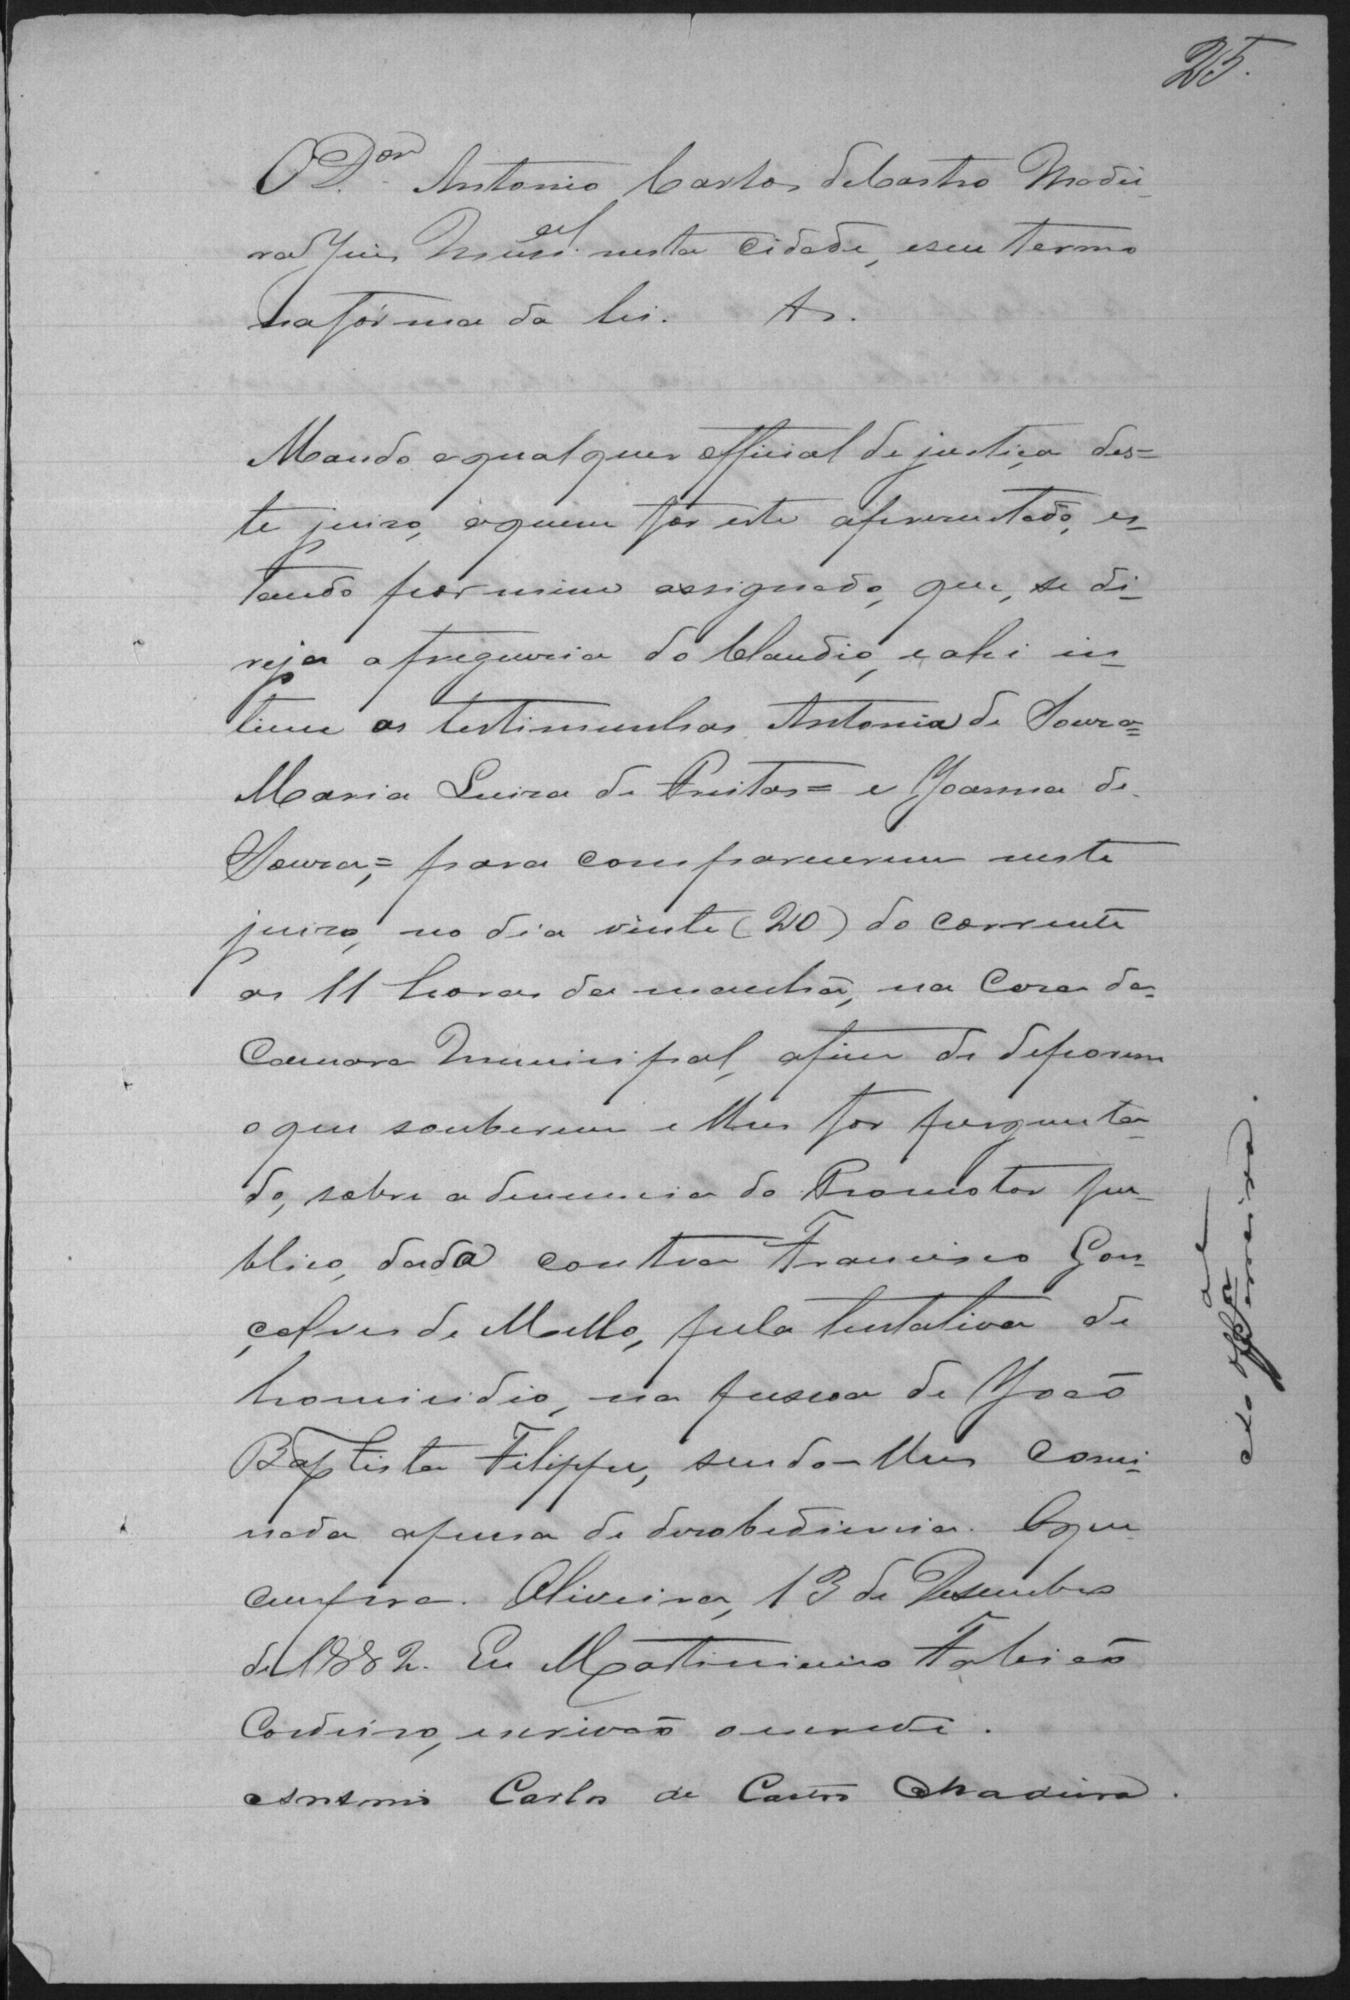 25.
O D.or Antonio Carlos de Castro Madei-
ra Juis Mun.al nesta cidade, e seu termo
na fórma da lei. &.
Mando a qual quer official de justiça des=
te juiso, a quem for este apresentado, es-
tando por mim assignado, que, se di-
reja a freguesia do Claudio, e ahi in-
time as testimunhas Antonia de Souza=
Maria Luiza de Freitas= e Joanna de
Souza,= para comparecerem neste
juizo, no dia vinte (20) do corrente
as 11 horas da manhã, na Casa da
Camara Municipal, afim de deporem
o que souberem e lhes for pergunta-
do, sobre a denuncia do Promotor pu-
blico, dada contra Francisco Gon-
çalves de Mello, pela tentativa de
homicidio, na pessoa de João
Baptista Felippe, sendo-lhes comi-
nada a pena de desobediencia. O que
cumpra. Oliveira, 13 de Desembro
de 1882. Eu Martiniano
Cordeiro, escrivão o escrevi.
Antonio Carlos de Castro Madeira.
Ao off.al
Ferreira.